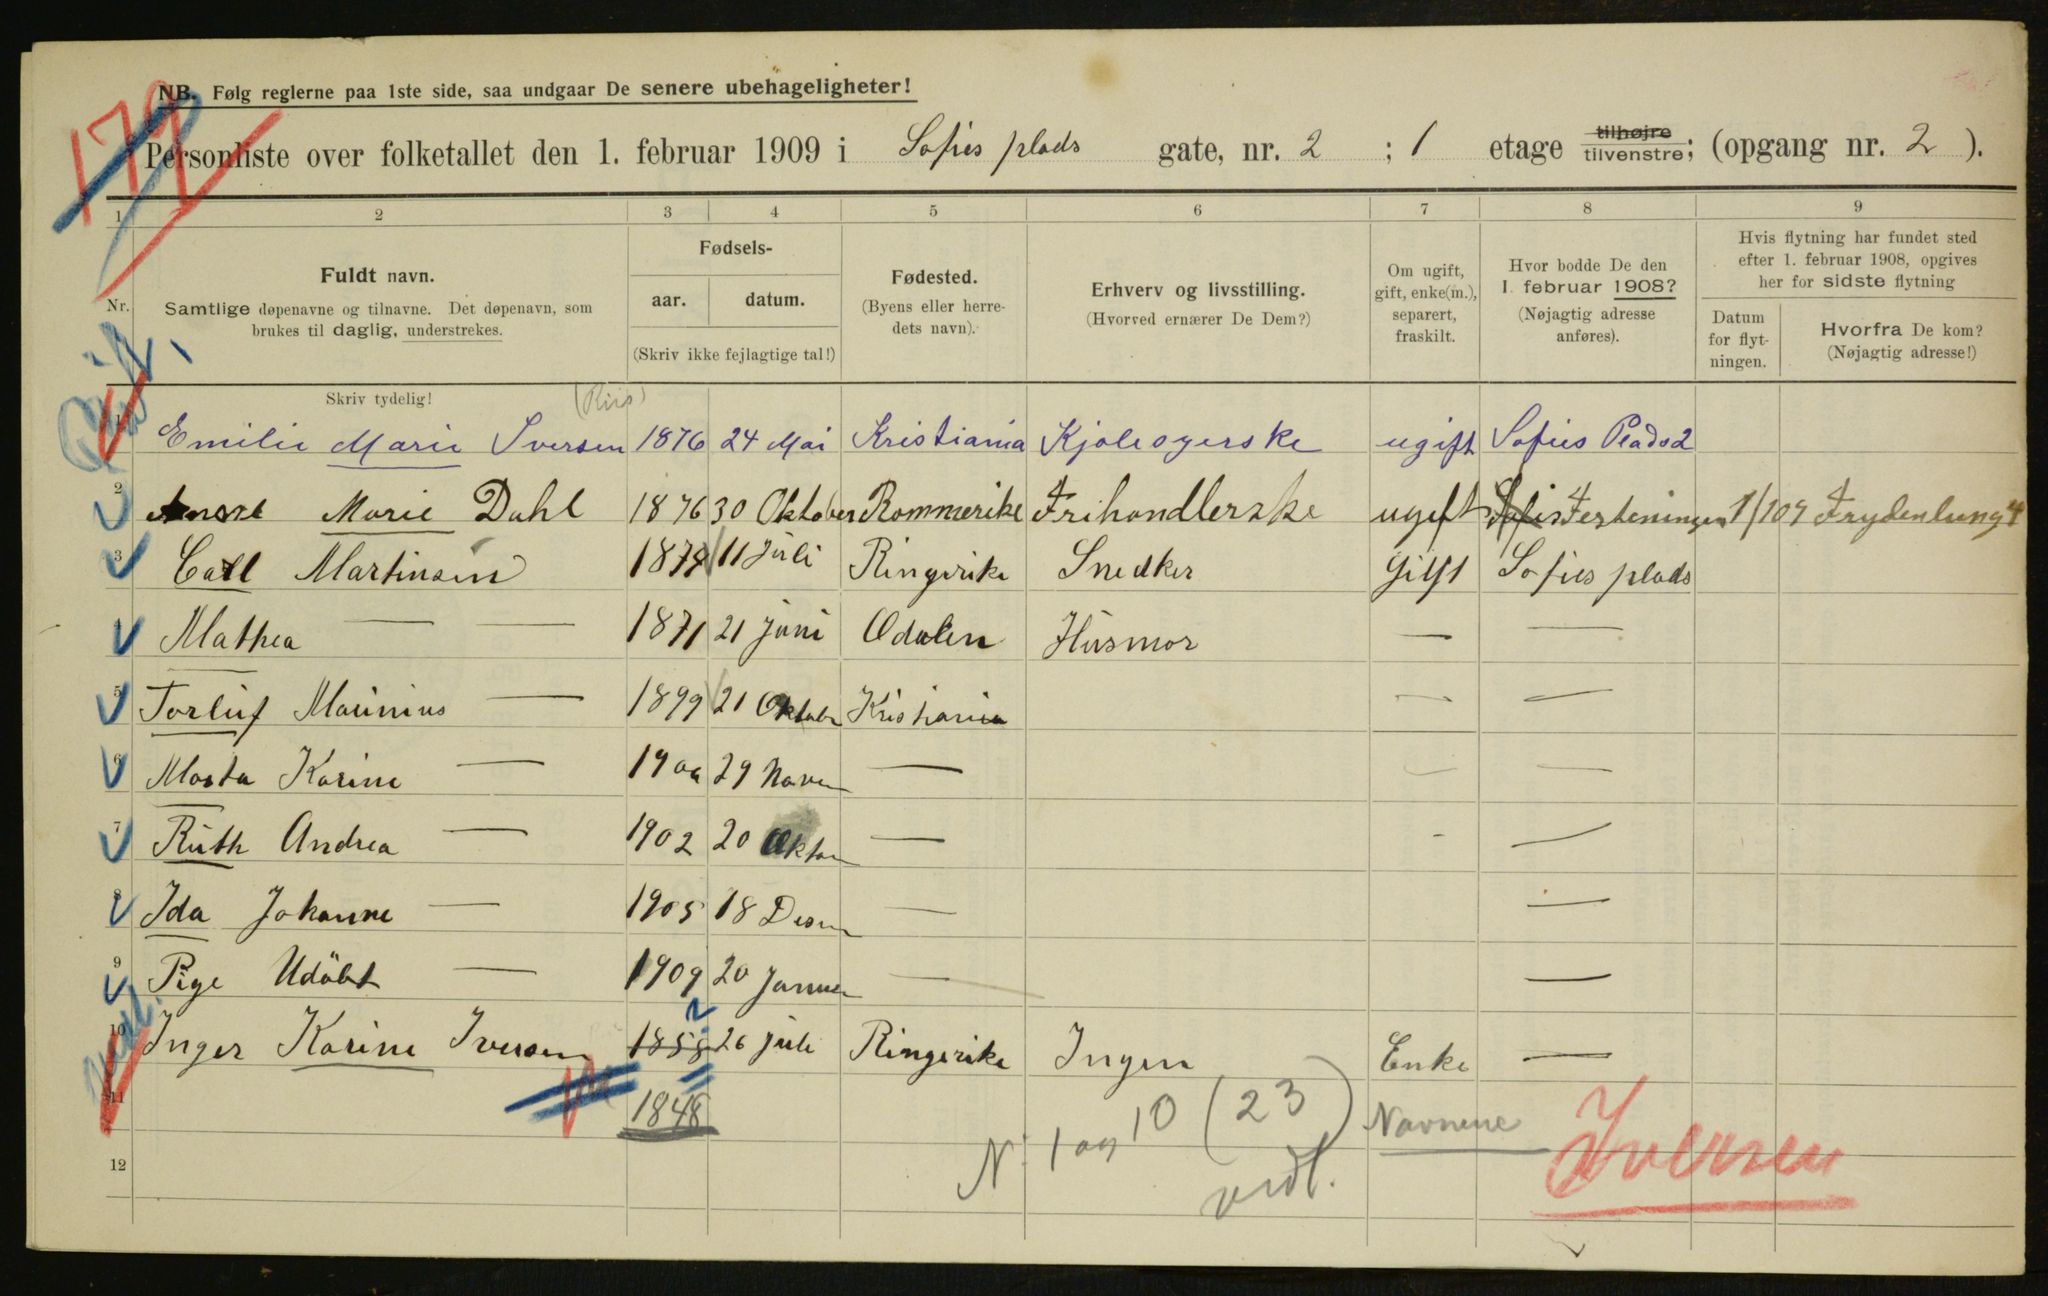 NB. Følg reglerne paa 1ste side, saa undgaar De senere ubehageligheter!
Personliste over folketallet den 1. februar 1909 i Sofies plads gate, nr. 2 ; 1 etage tilhøjre tilvenstre; (opgang nr. 2 ).
1 2 3 4 5 6 7 8 9
Nr.
Fuldt navn.
Samtlige døpenavne og tilnavne. Det døpenavn, som
brukes til daglig, understrekes.
Fødsels-
aar. datum.
(Skriv ikke fejlagtige tal!)
Fødested.
(Byens eller herre-
dets navn).
Erhverv og livsstilling.
(Hvorved ernærer De Dem?)
Om ugift,
gift, enke(m.),
separert,
fraskilt.
Hvor bodde De den
1. februar 1908?
(Nøjagtig adresse
anføres).
Hvis flytning har fundet sted
efter 1. februar 1908, opgives
her for sidste flytning
Datum
for flyt-
ningen.
Hvorfra De kom?
(Nøjagtig adresse!)
Skriv tydelig!
1 Emilie Marie Iversen 1876 24 Mai Kristiania Kjolesyerske ugift Sofies Plads 2
2 Marie Dahl 1876 30 Oktober Rommerike Frihandlerske ugift
3 Carl Martinsen 11 Juli Ringerike Snedker Gift Sofies plads
4 Mathea — — 1871 21 Juni Odalen Husmor — —
5 Torluf Marinius — 1899 21 Oktober Kristiania — —
6 Marta Karine — 1900 29 Novem — — —
7 Ruth Andrea — 1902 20 Oktom — - —
8 Ida Johanne — 1905 18 Desm — —
9 Pige Udöbt — 1909 20 Januar — —
10 Inger Karine Iversen 26 Juli Ringerike Ingen Enke —
11 1848
N: 1 og 10 (23) Navnene
Iversen
vedl.
12